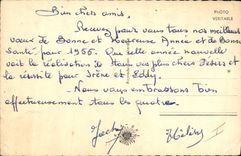 Bien chers amis,
Recevez pour vous tous nos meilleurs
vœux de Bonne et Heureuse Année et de Bonne
Santé pour 1966. Que cette année nouvelle
voit la réalisation de tous vos plus chers désirs et
la réussite pour Irène et Eddy.
Nous vous embrassons tous
affectueusement tous les quatre.
PHOTO
VERITABLE